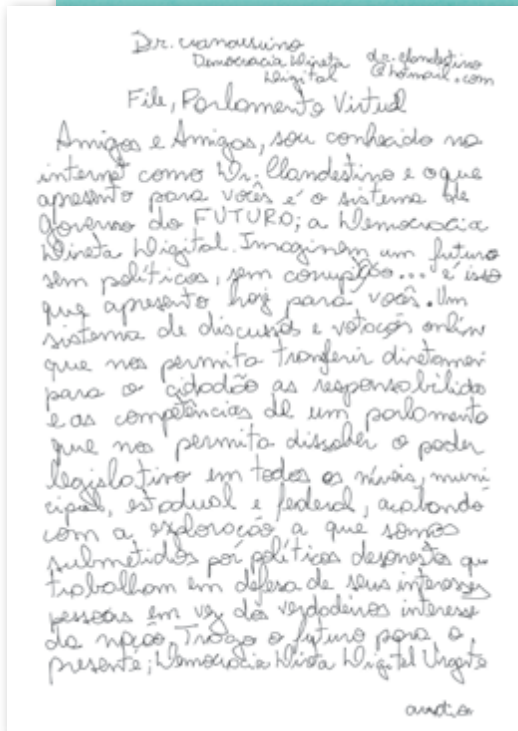 Dr. Clandestino
Democracia Direta dr.clandestino
Digital @hotmail.com
File, Parlamento Virtual
Amigos e Amigas, sou conhecido na
internet como Dr. Clandestino e o que
apresento para vocês é o sistema de
governo do FUTURO; a Democracia
Direta Digital. Imaginem um futuro
sem políticos, sem corrupção... é isso
que apresento hoje para vocês. Um
sistema de discussões e votações onlin
que nos permita transferir diretamen
para o cidadão as responsabilida
e as competências de um parlamento
que nos permita dissolver o poder
legislativo em todos os níveis, muni
cipal, estadual e federal, acabando
com a exploração a que somos
submetidos por políticos desonestos qu
trabalham em defesa de seus interesses
pessoais em vez dos verdadeiros interesse
da nação. Trago o futuro para o
presente; Democracia Direta Digital Urgente